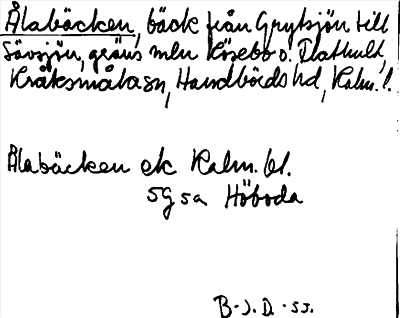 Ålabäcken, bäck från Grytsjön till
Sävsjön, gräns mln Kösebo o. Flathult,
Kråksmåla sn, Handbörds hd, Kalm. l.
Ålabäcken ek Kalm. bl.
5G 5a Höboda
B-J.D. -53.